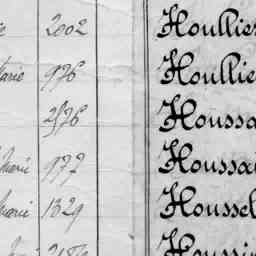 2002 Houllie
Marie 976 Houllie
2576 Houssa
Marie 977 Houssa
Marie 1329 Houssel
Houssi